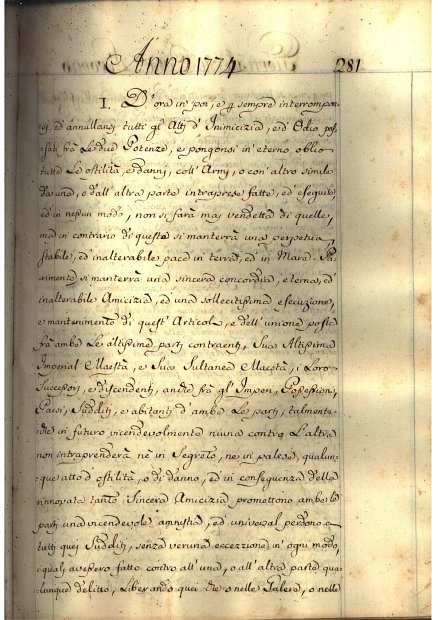 Anno 1774
281
I. D'ora in poi, e p sempre interrompon-
si, ed annillansi tutti gl'Atti d'Inimicizia, ed'Odio pas-
sati frà Le due Potenze, e pongonsi in'eterno oblio
tutte Le ostilità, e danni, coll'Army, o con'altro simile
da una, e dall'altra parte intraprese fatte, ed eseguite
ed in nessun modo, non si farà mai vendetta di quelle,
mà in contrario di questo si manterrà una perpetua
stabile, ed inalterabile pace in terra, ed in Mare. Pa-
rimente si manterrà una sincera concordia, eterna, ed
inalterabile Amicizia, ed una sollecitissima esecuzione,
e mantenimento di quest'Articolo, e dell'unione posta
frà ambe Le altissime parti contraenti, Sua Altissima
Imperial Maestà, e Sua Sultanea Maestà, i Loro
Successori, e discendenti, anche frà gl'Imperi, Possessioni,
Paesi, Sudditi, e abitanti d'ambe Le parti, talmente-
che in futuro vicendevolmente niuno contro L'altra
non intraprenderà nè in Segreto, nè in palese, qualun-
que atto d'ostilità, o di danno, ed in consequenza della
rinovata tanto Sincera Amicizia promettono ambe le
parti una vicendevole amnistia, ed universal perdono a
tutti quei Sudditi, senza veruna eccezzione in'ogni modo,
i quali avessero fatto contro all'una, o all'altra parte qua-
lunque delitto, Liberando quei che o nelle Galere, o nelle